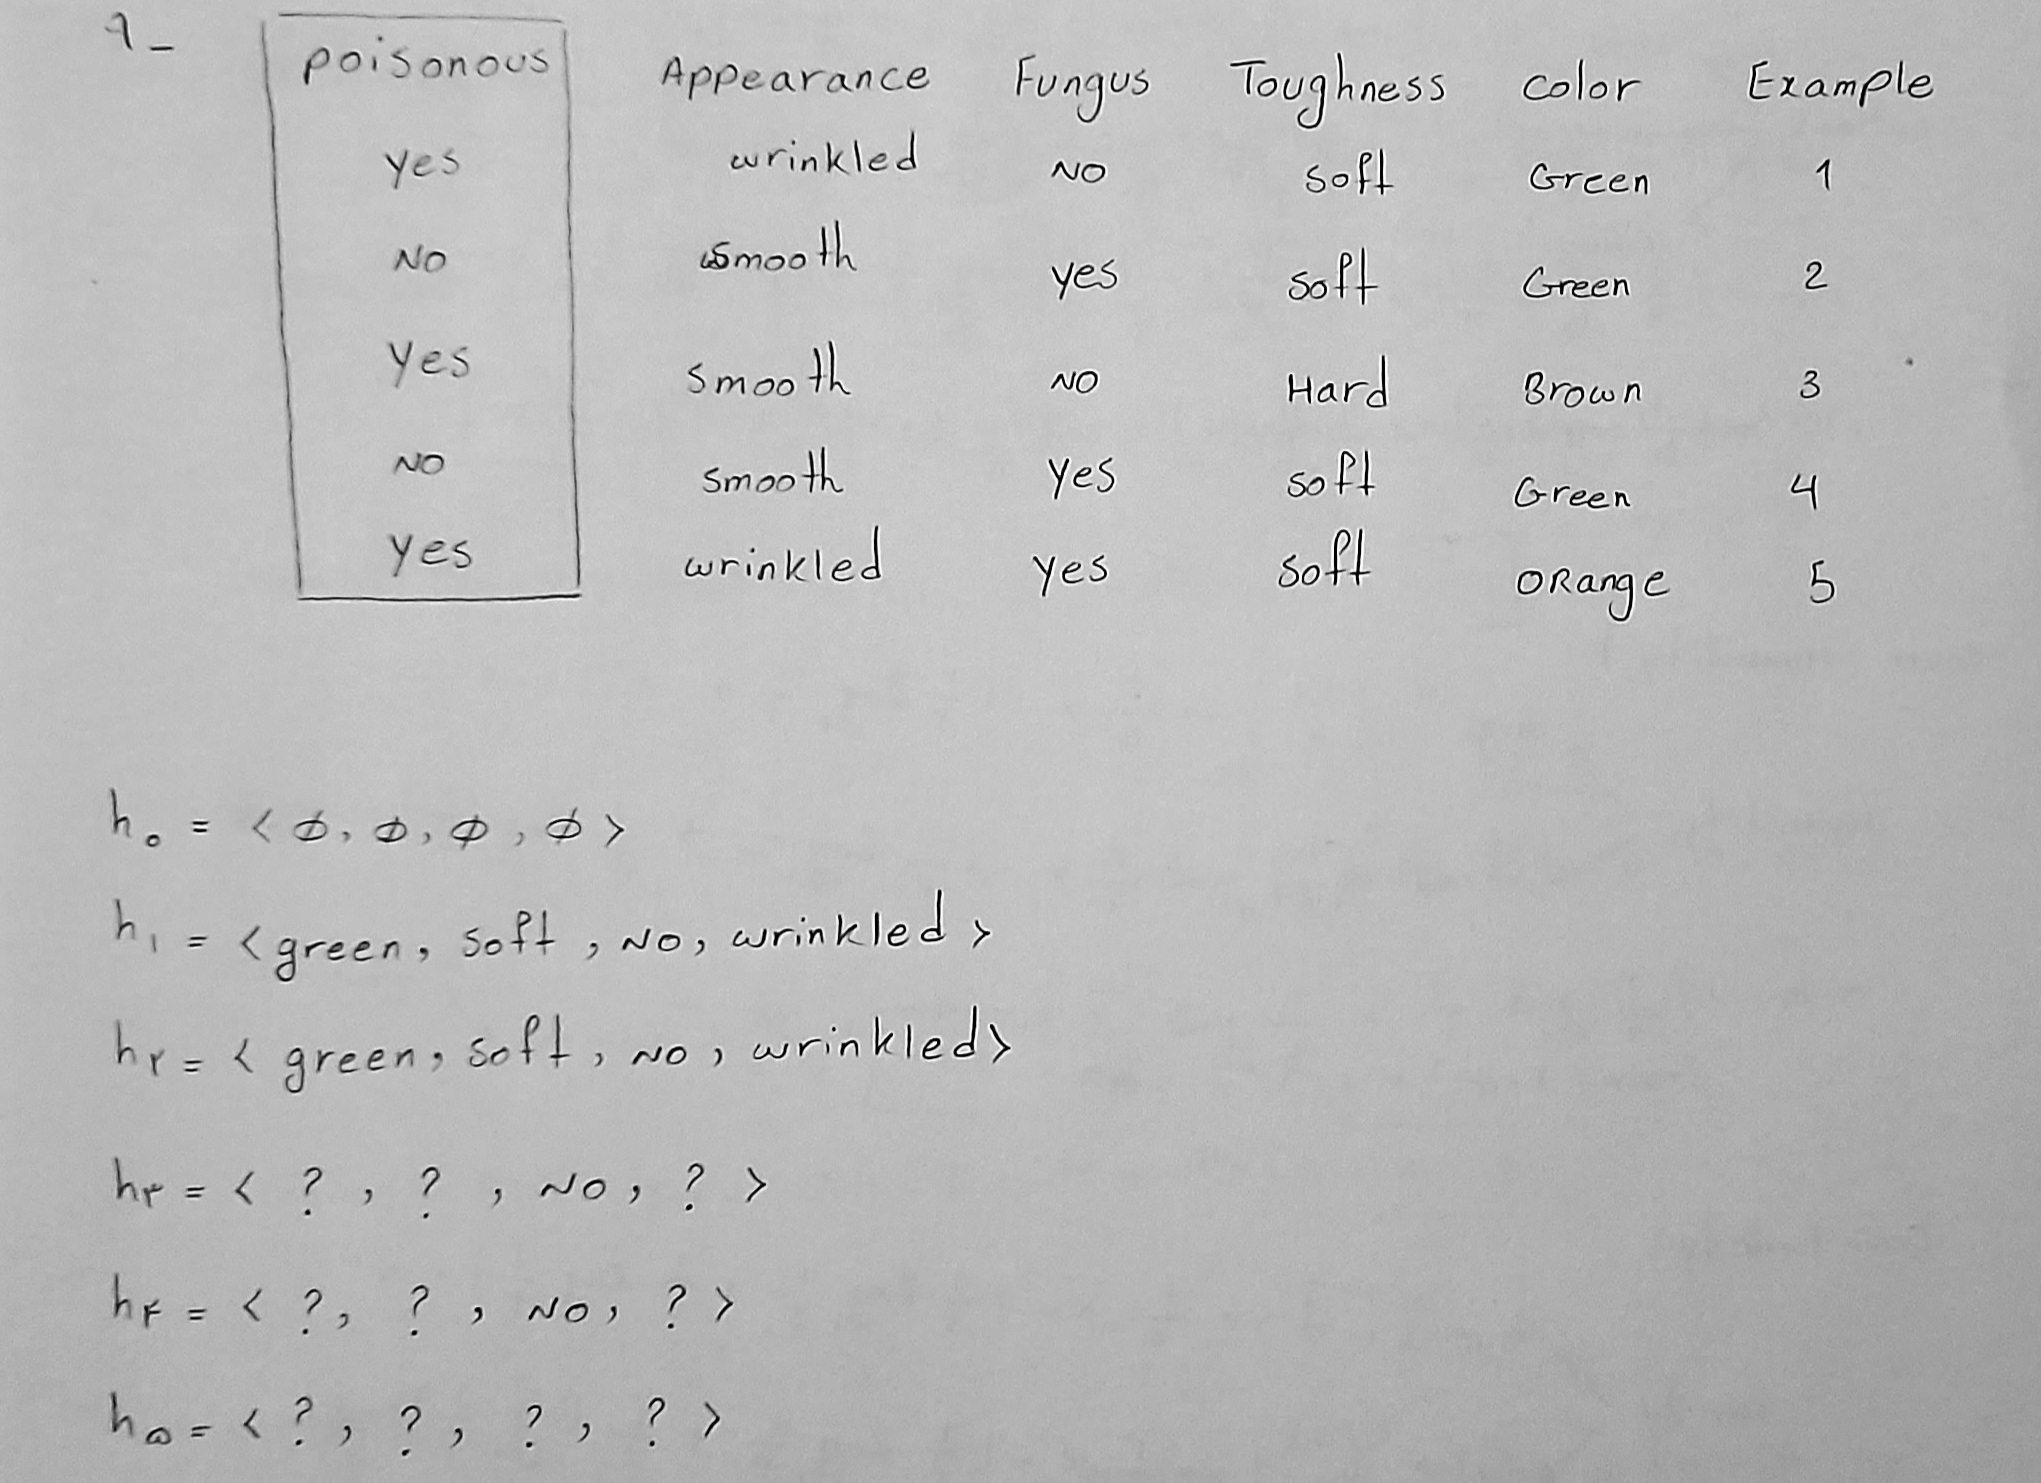 9_
poisonous Appearance Fungus Toughness color Example
yes wrinkled NO soft Green 1
NO smooth yes soft Green 2
Yes smooth NO Hard Brown 3
NO smooth Yes soft Green 4
Yes wrinkled yes soft ORange 5
h₀ = < ∅, ∅, ∅, ∅ >
h₁ = < green, soft, NO, wrinkled >
h۲ = < green, soft, NO, wrinkled >
h۳ = < ?, ?, NO, ? >
h۴ = < ?, ?, NO, ? >
h۵ = < ?, ?, ?, ? >